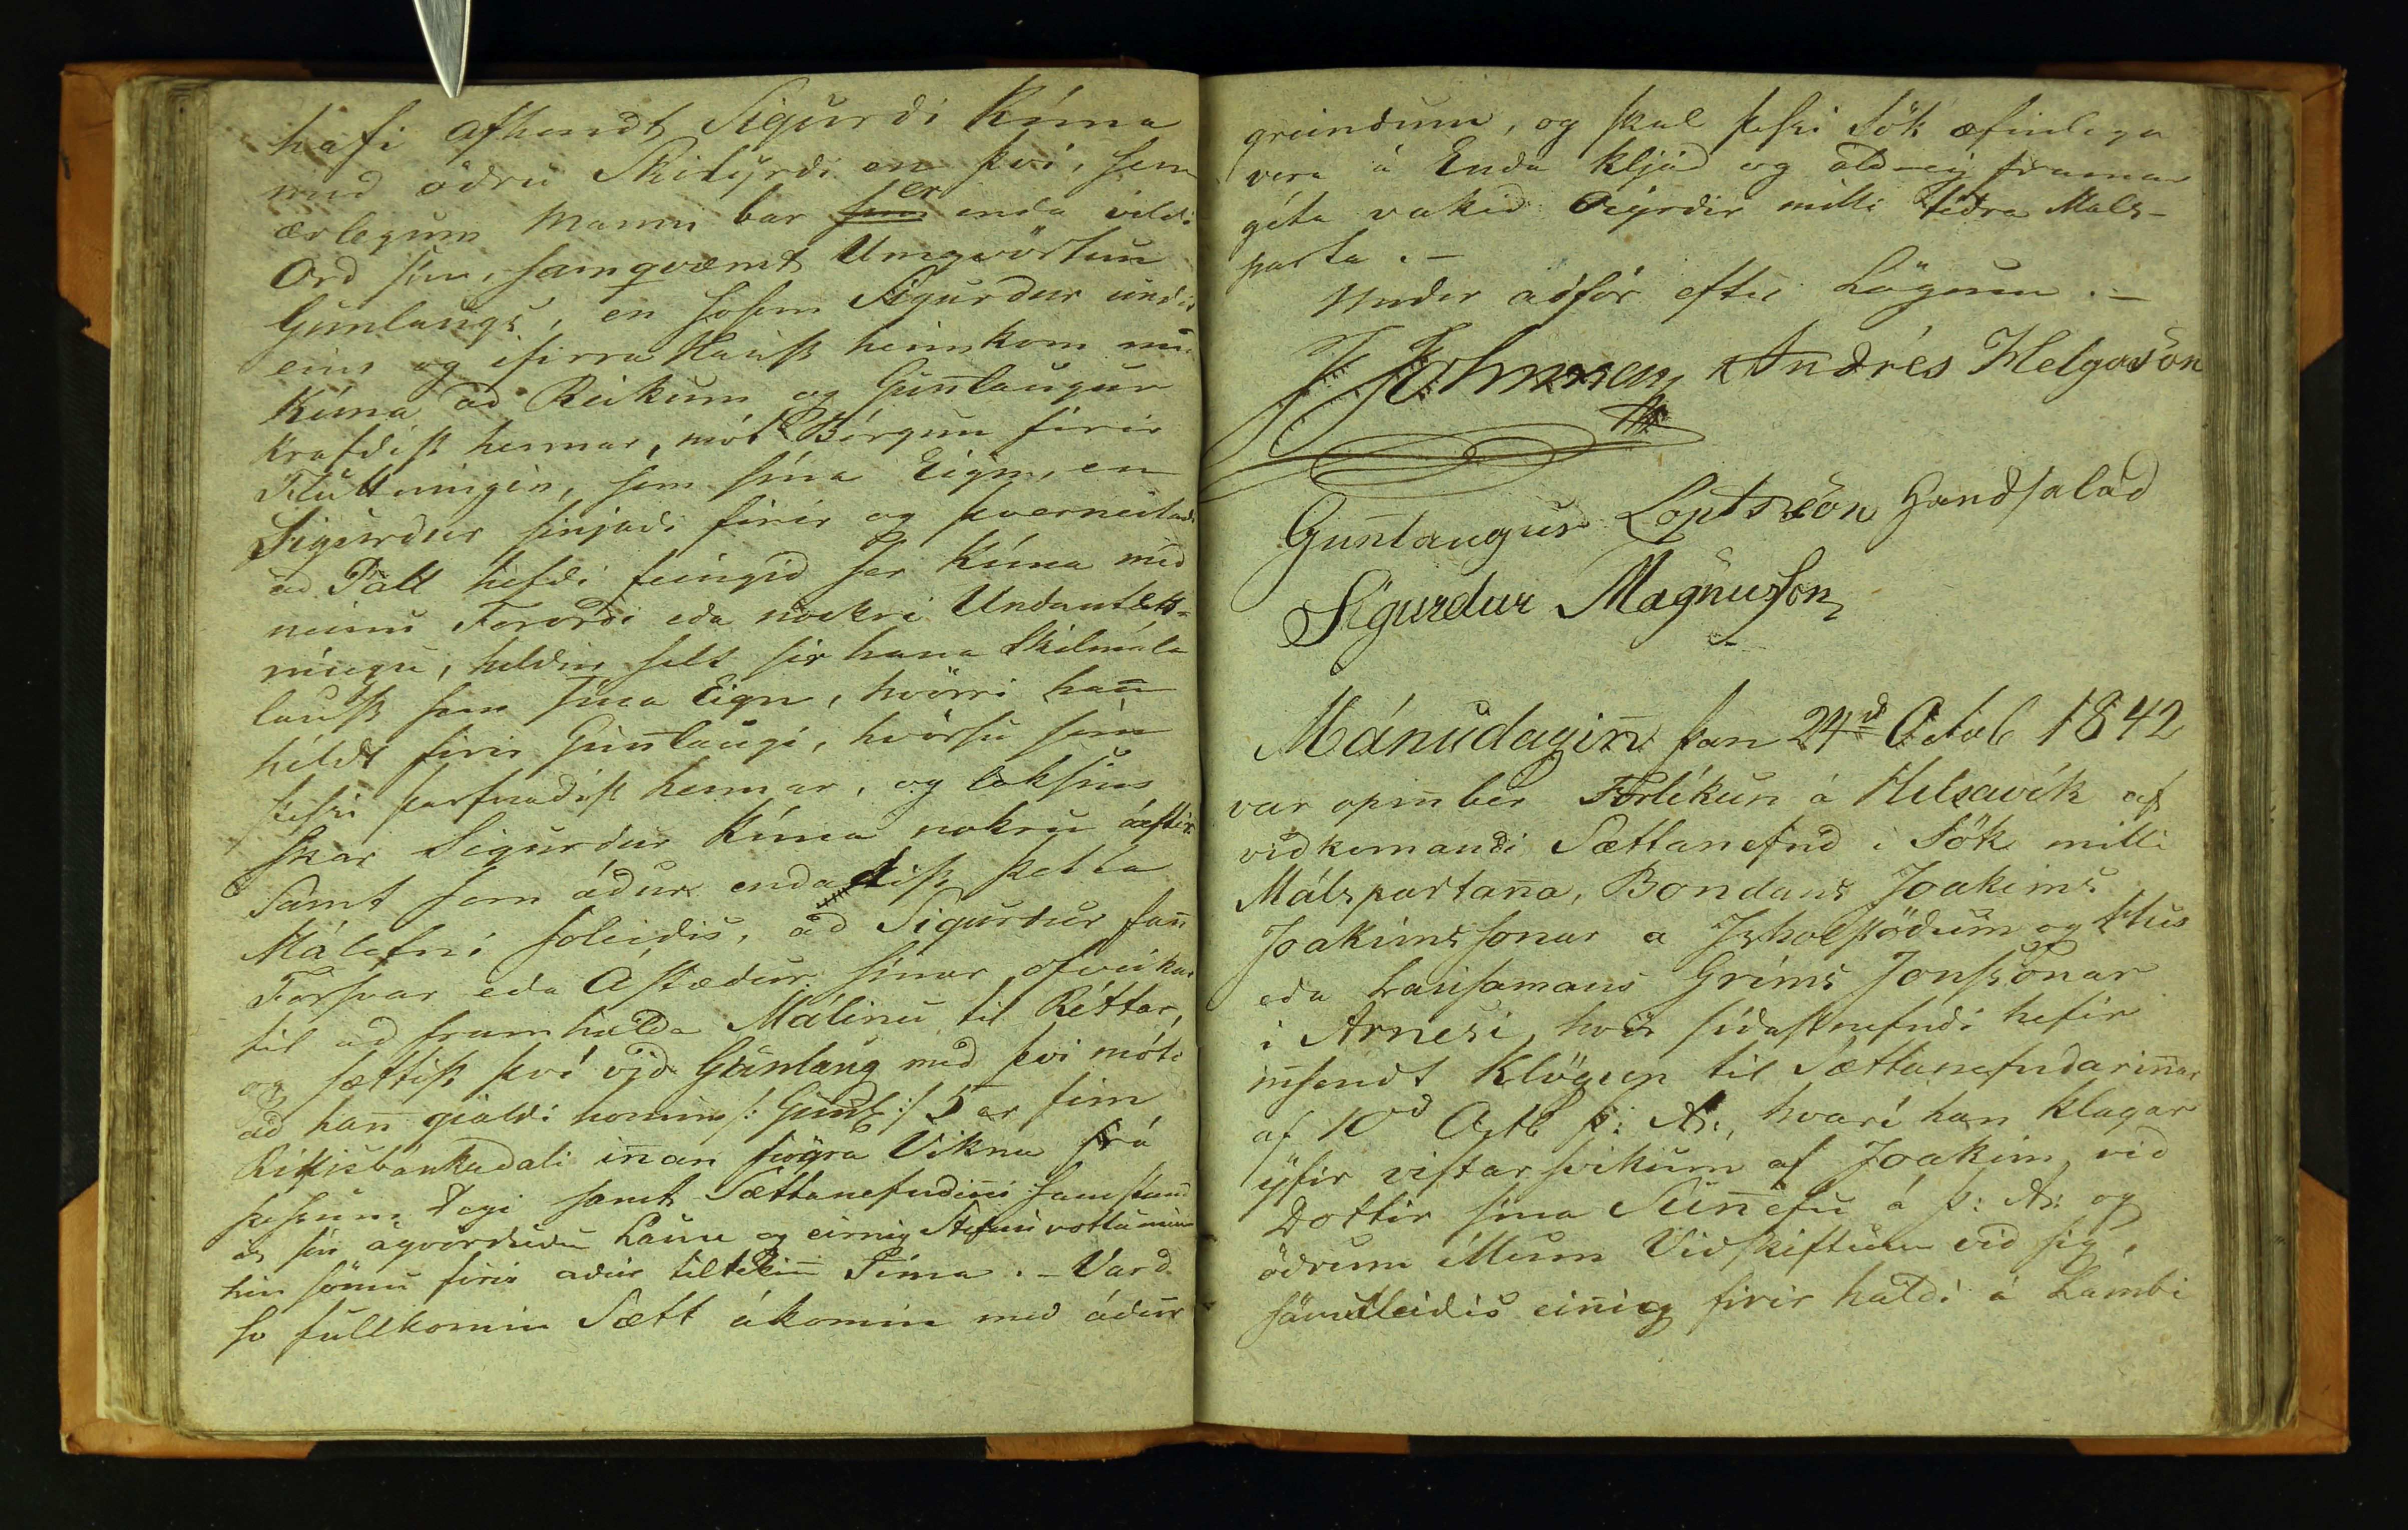 hafi afhendt Sigurði Kúna
með öðru Skilÿrði en því, sem
ærlegum Manni bar er enda vildi
Orð sín, samqvæmt Umgvörtun
Gunlaugs, en sosem Sigurður undir
eins og ifirra Haust heimkom með
Kúna að Reikum og Gun̄laugur
krafðist hennar, mót Borgun firir
Fluttningin, sem sína Eign, en
Sigurður sinjaði firir og þverneitaði
að Páll hefði feingið sér Kúna með
neinu Fororði eða nockri Undantekn-
níngu, heldur selt sér hana Skilmála
laust sem sína Eign, hvörri han̄
héldt firir Gun̄laugi, hvörsu sem
þessi þarfnadist hennar, og loksins
skar Sigurður Kúna nokru áeftir
Samt sem áður endadist þetta
Málefni soleiðis, að Sigurður fan̄
Forsvar eða Ástæður sínar ofveikar
til að framhalda Málinu til Réttar,
og sættist því við Gunlaug með því móti
að han̄ gialdi honum /: Gunl: / 5 er fim
Ríkisbankadali in̄an fiögra Vikna frá
þessum Degi samt Sættanefndin̄i
hin sömu firir aður tiltekin̄ Tíma. - Varð
so fullkomin Sætt ákomin með áður
greindum, og skal þessi Sök æfinlega
vera á Enda kljáð og aldrej framar
géta vakið Deÿrðir milli téðra Máls-
parta. -
Under aðför eftir Lögum. -
J Johnsen Andrés Helgason
Gun̄laugur Loptsson Handsalað
Sigurdur Magnusson
Mánudagin̄ þan 24ð Octob 1842
var opin̄ber Forlíkun á Húsavík af
viðkomandi Sættanefnd i Sök milli
Málspartan̄a, Bondans Joakims
Joakimssonar a Isholstöðum og Hus
eða Lausamans Gríms Jonssonar
i Arnesi, hvör síðastnefndi hefir
in̄sendt Klögun til Sættanefndarin̄ar
af 10d Octb þ: A:, hvarí han klagar
ÿfir vistarsvikum af Joakim við
Dottir sína Sun̄efu á þ: A: og
öðrum illum Viðskiftum við sig,
sömuleiðis ein̄ig firir haldi á Lambi